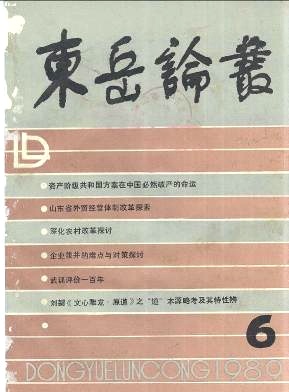 東岳論叢
资产阶级共和国方案在中国必然破产的命运
山东省外贸经营体制改革探索
深化农村改革探讨
企业兼并的难点与对策探讨
武训评价一百年
刘勰《文心雕龙·原道》之“道”本源略考及其特性辨
6
DONGYUELUNCONG1989